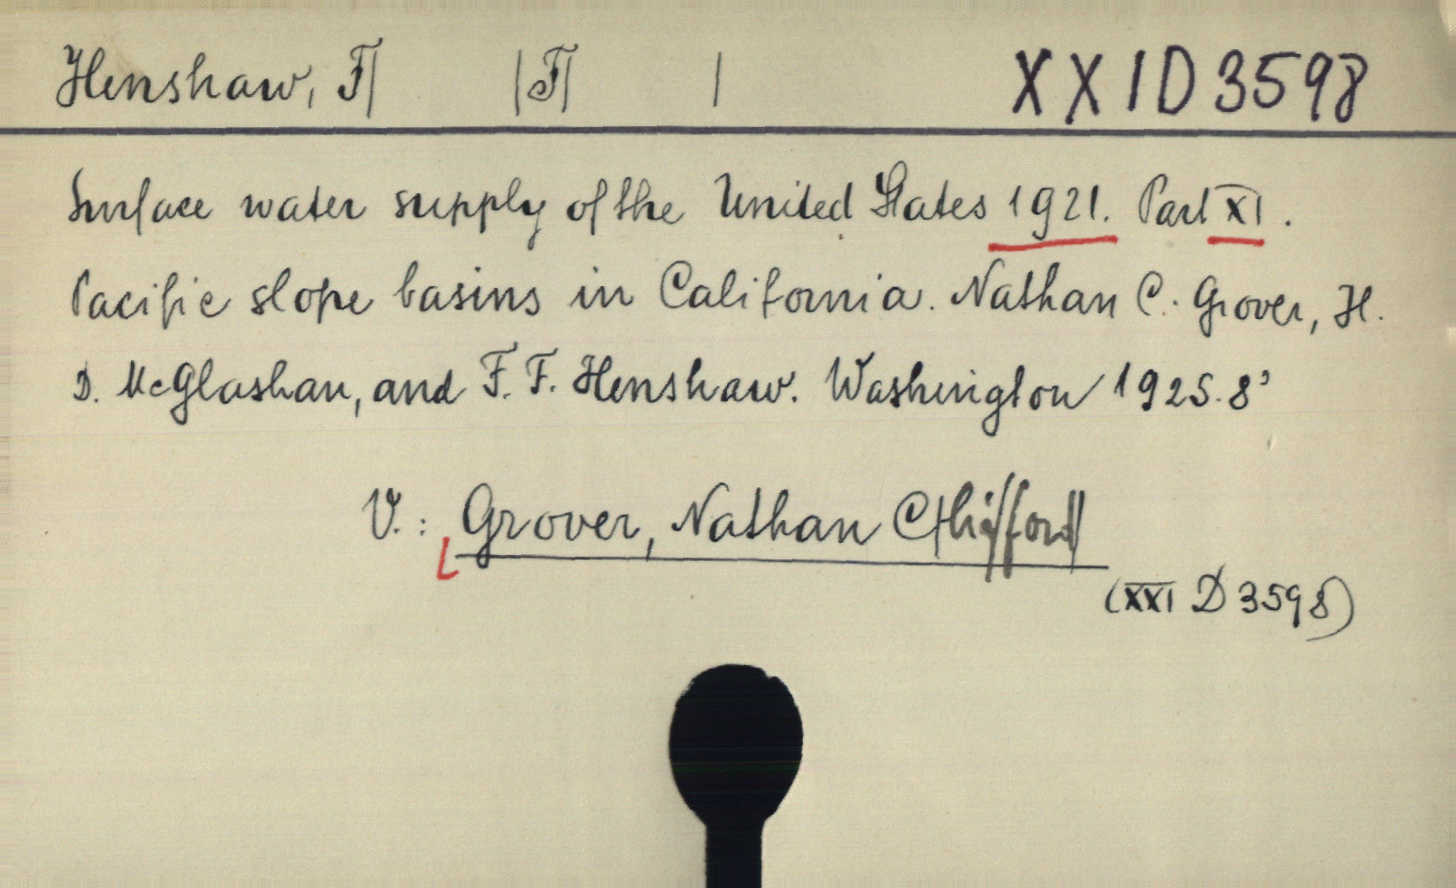 Henshaw, F| |F| | XXI D 3598
Surface water supply of the United States 1921. Part XI.
Pacific slope basins in California. Nathan C. Grover, H.
D. McGlashan, and F. F. Henshaw. Washington 1925. 8°
V.: Grover, Nathan C|lifford|
(XXI D 3598)